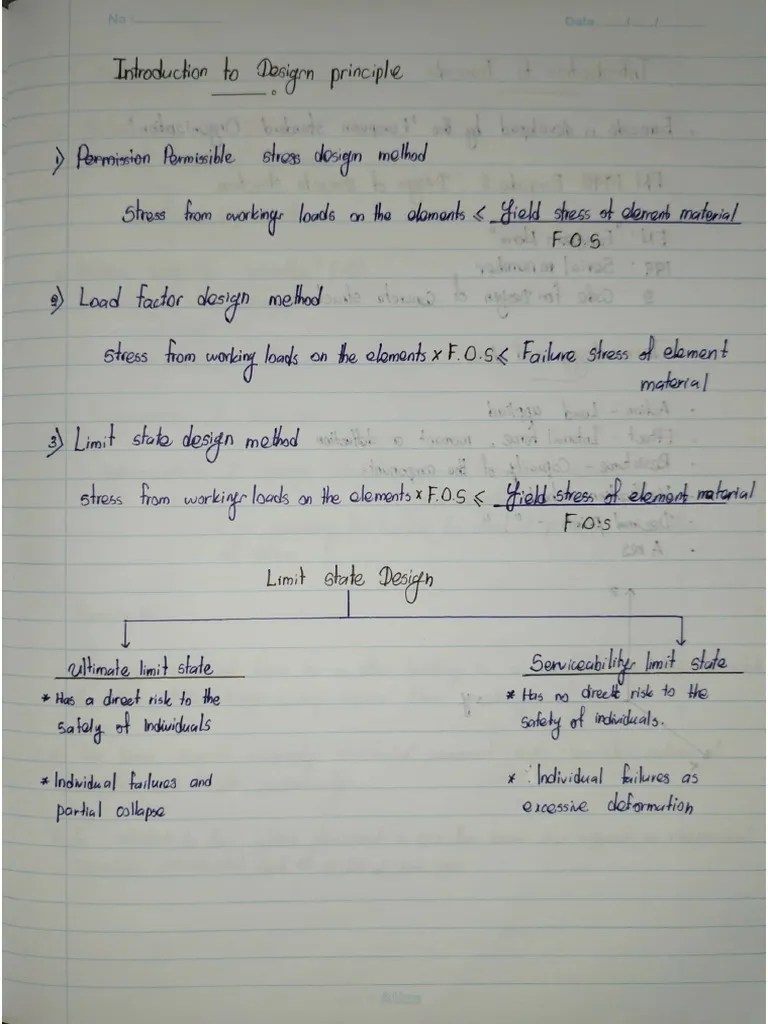 No :
Date / /
Introduction to Design principle
1) Permission Permissible stress design method
Stress from workings loads on the elements ≤ Yield stress of element material
F.O.S
2) Load factor design method
Stress from working loads on the elements x F.O.S ≤ Failure stress of element
material
3) Limit state design method
stress from workings loads on the elements x F.O.S ≤ Yield stress of element material
F.O.S
Limit state Design
Ultimate limit state
* Has a direct risk to the
safety of individuals
* Individual failures and
partial collapse
Serviceability limit state
* Has no direct risk to the
safety of individuals.
* Individual failures as
excessive deformation